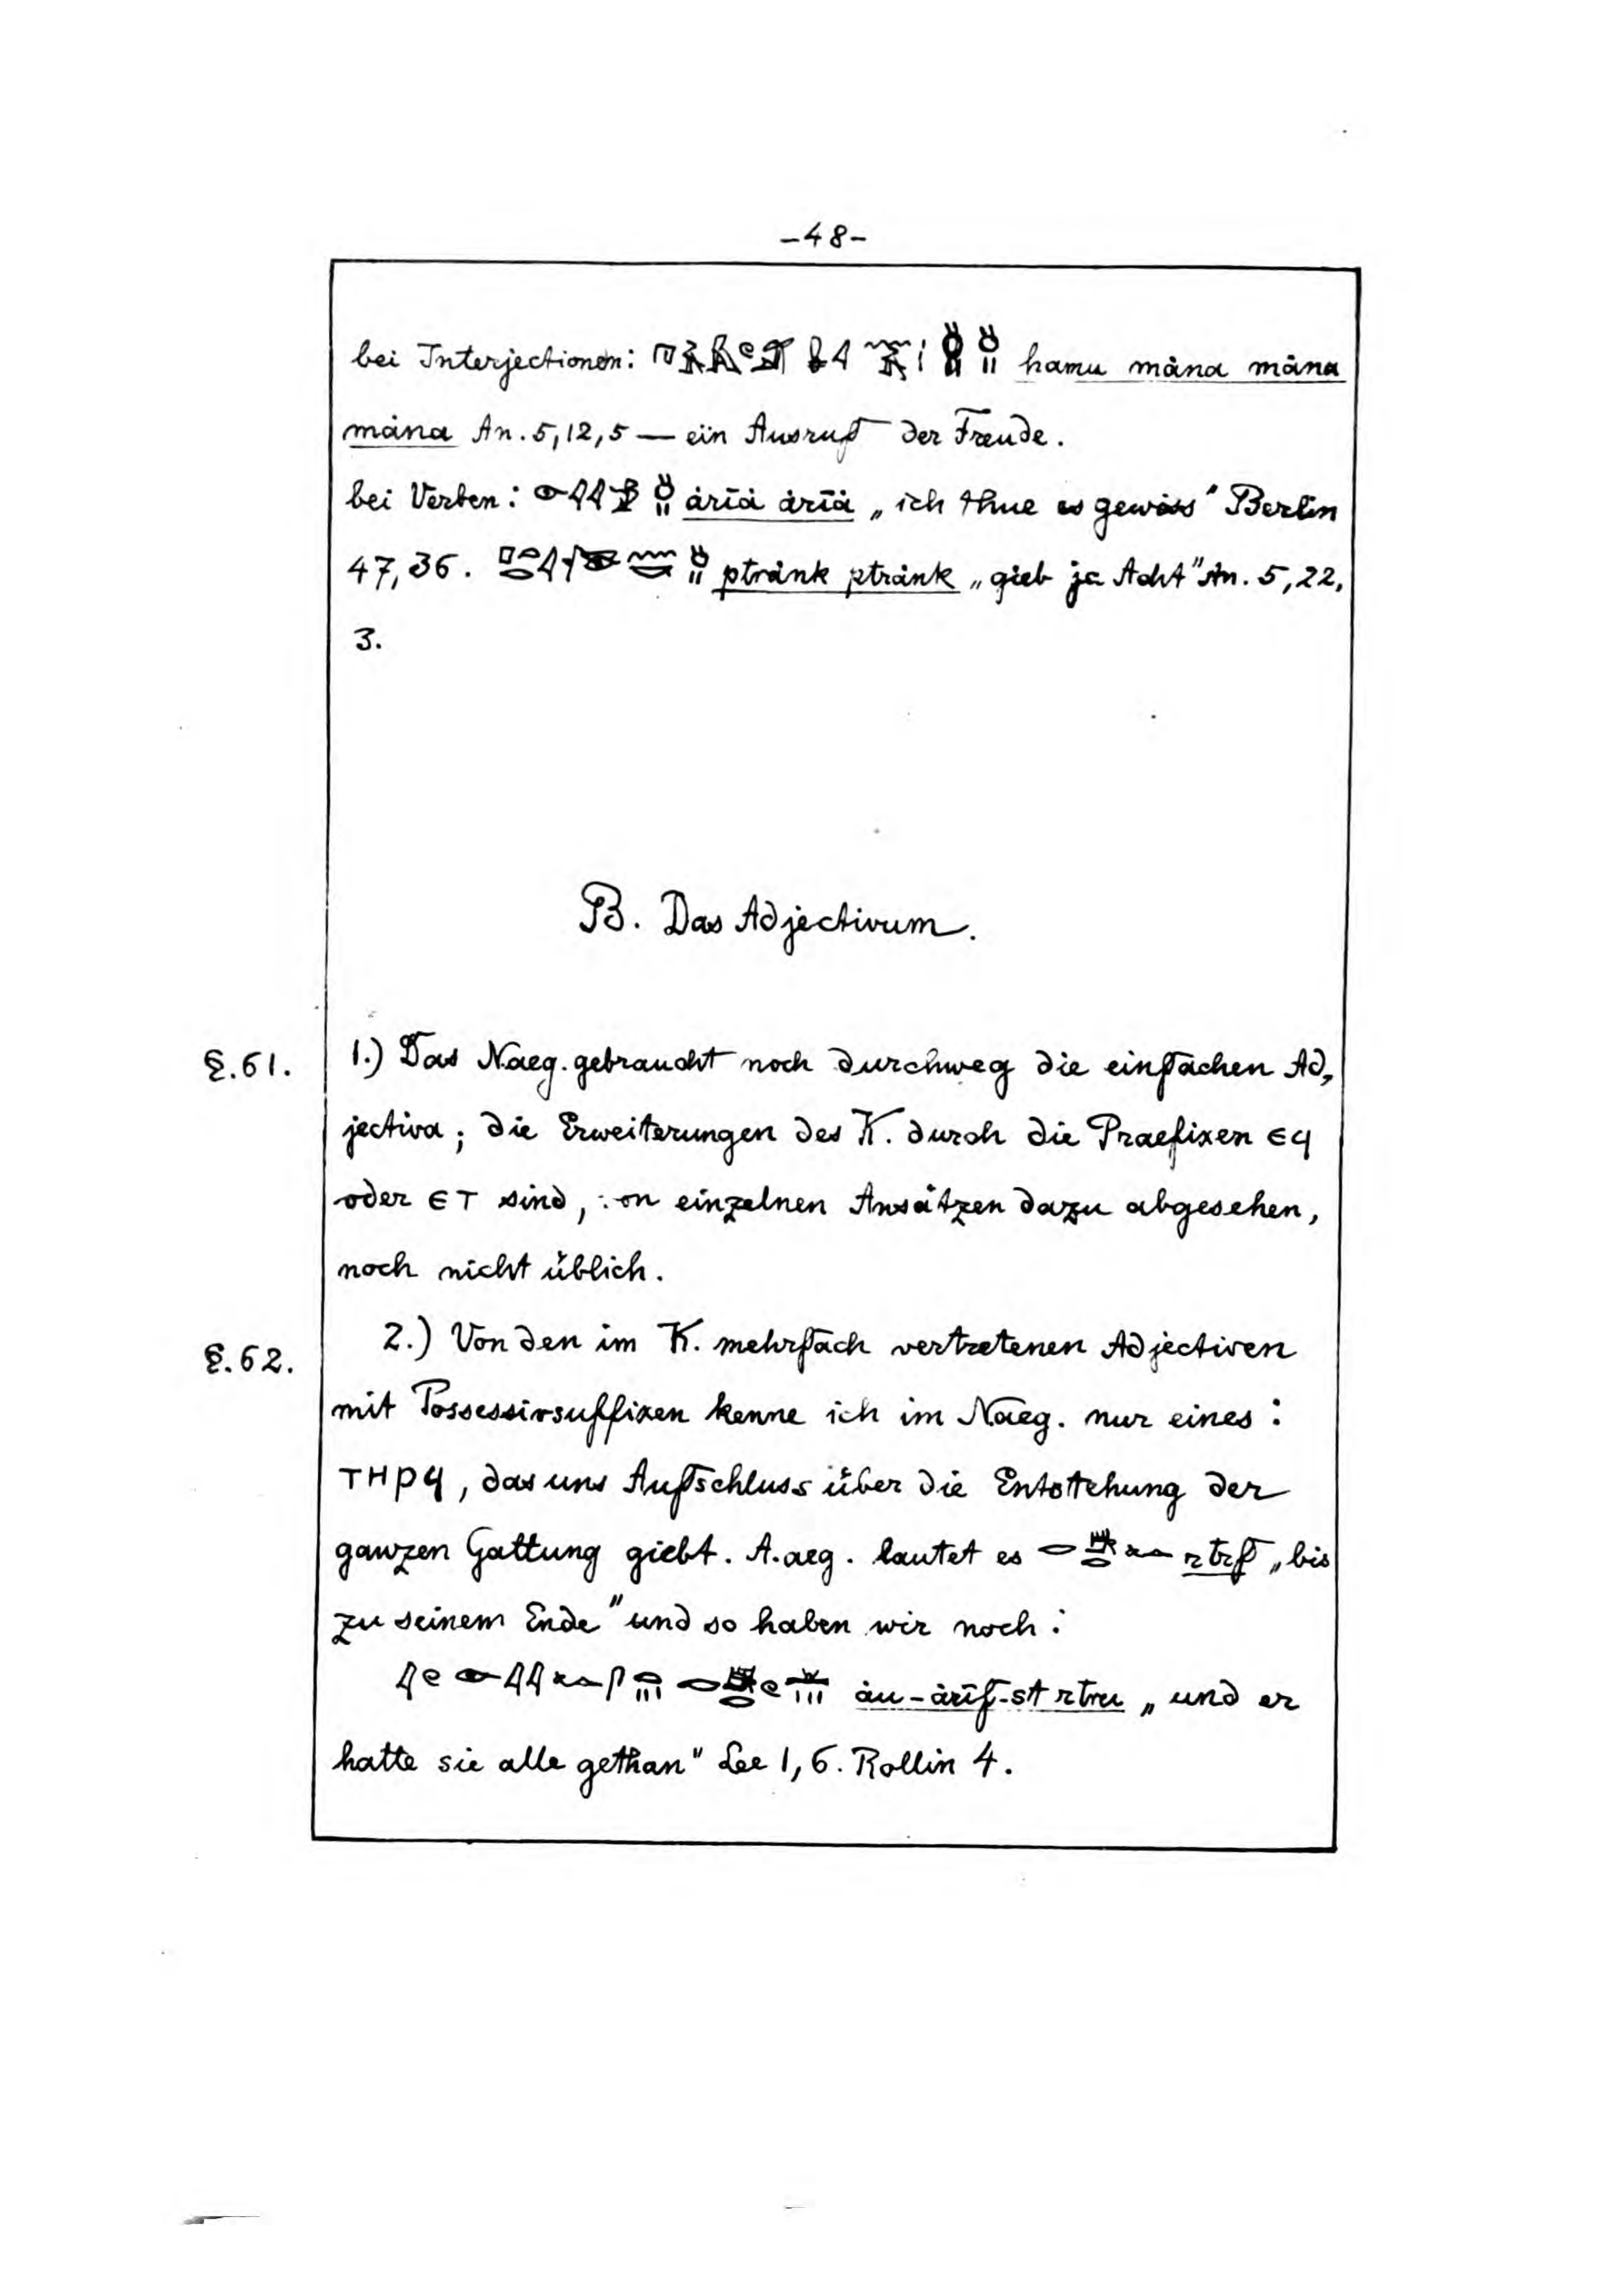 -48-
bei Interjectionen: hamu màna màna
màna An. 5,12,5 — ein Ausruf der Freude.
bei Verben: àrīà àrīà „ich thue es gewiss" Berlin
47,36. ptrànk ptrànk „gieb ja Acht" An. 5,22,
3.
B. Das Adjectivum.
§.61. 1.) Das Naeg. gebraucht noch durchweg die einfachen Ad,
jectiva; die Erweiterungen des K. durch die Praefixen ⲉϥ
oder ⲉⲧ sind, :on einzelnen Ansätzen dazu abgesehen,
noch nicht üblich.
§.62. 2.) Von den im K. mehrfach vertretenen Adjectiven
mit Possessivsuffixen kenne ich im Naeg. nur eines:
ⲧⲏⲣϥ, das uns Aufschluss über die Entstehung der
ganzen Gattung giebt. A.aeg. lautet es rtrf „bis
zu seinem Ende" und so haben wir noch:
àu-àrīf-st rtru „und er
hatte sie alle gethan" Lee 1,6. Rollin 4.